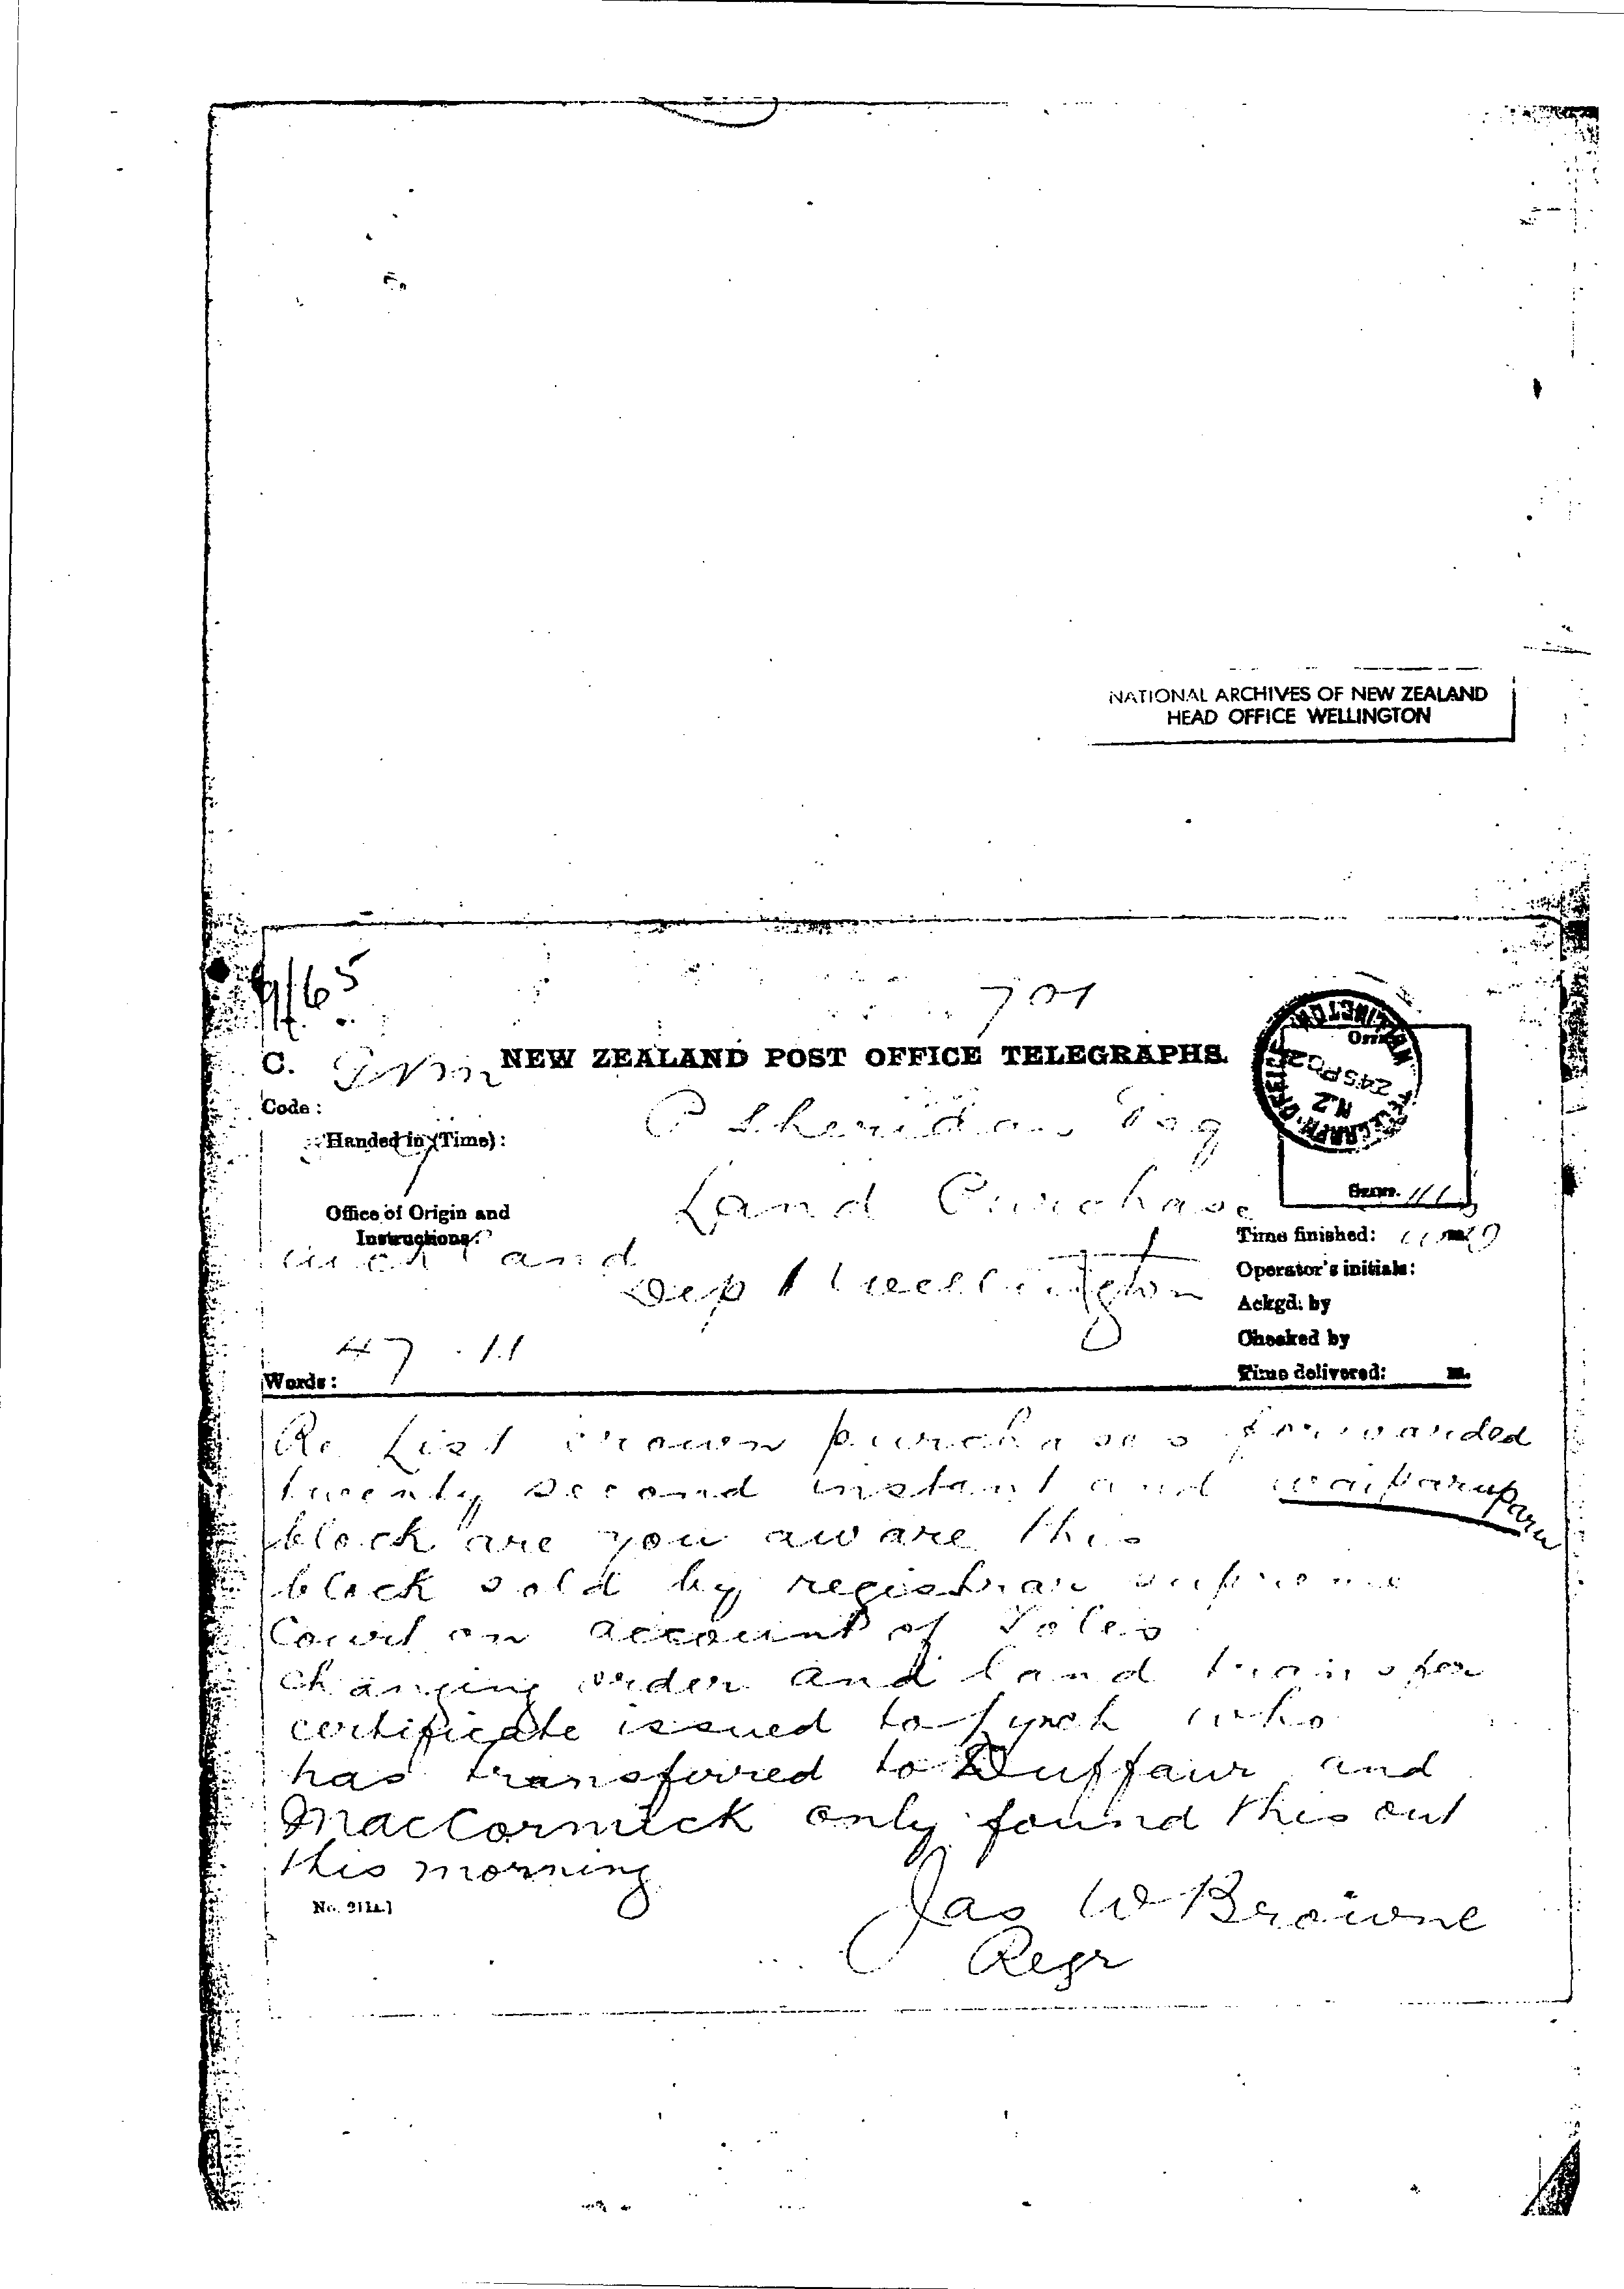 NATIONAL ARCHIVES OF NEW ZEALAND
HEAD OFFICE WELLINGTON
701
C. NEW ZEALAND POST OFFICE TELEGRAPHS.
WELLINGTON
TELEGRAPH OFFICE
N.Z
24 SP 02
Code :
Handed in (Time) :
P Sheridan Esq
Office of Origin and
Instructions:
Auckland
Land Purchase
Dept Wellington
Time finished:
Operator's initials:
Ackgd. by
Checked by
Time delivered: m.
47 . 11
Words :
Re List crown purchases forwarded
twenty second instant and waiparuparu
block are you aware this
block sold by registrar supreme
Court on account of Toles
changing order and land transfer
certificate issued to Lynch who
has transferred to Duffaur and
MacCormick only found this out
this morning
Jas W Browne
Regr